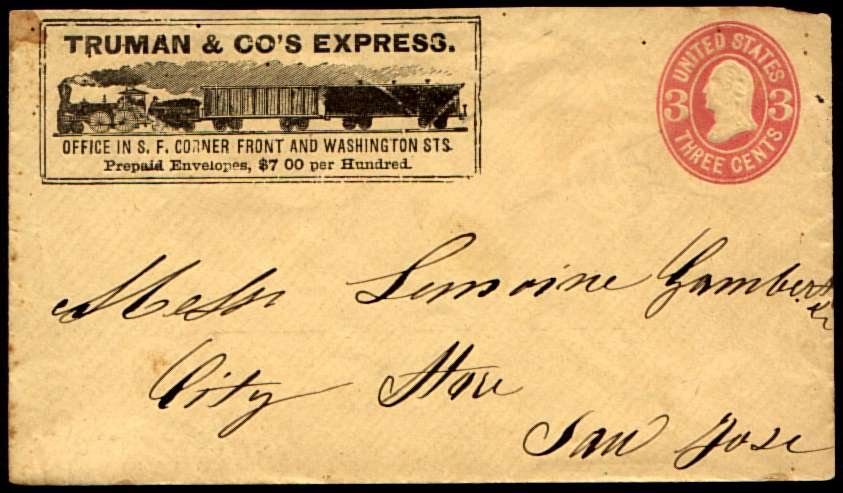 TRUMAN & CO'S EXPRESS.
OFFICE IN S. F. CORNER FRONT AND WASHINGTON STS.
Prepaid Envelopes, $7 00 per Hundred.
UNITED STATES
3 3
THREE CENTS
Messr Lemoine Gambert
City Store
San Jose